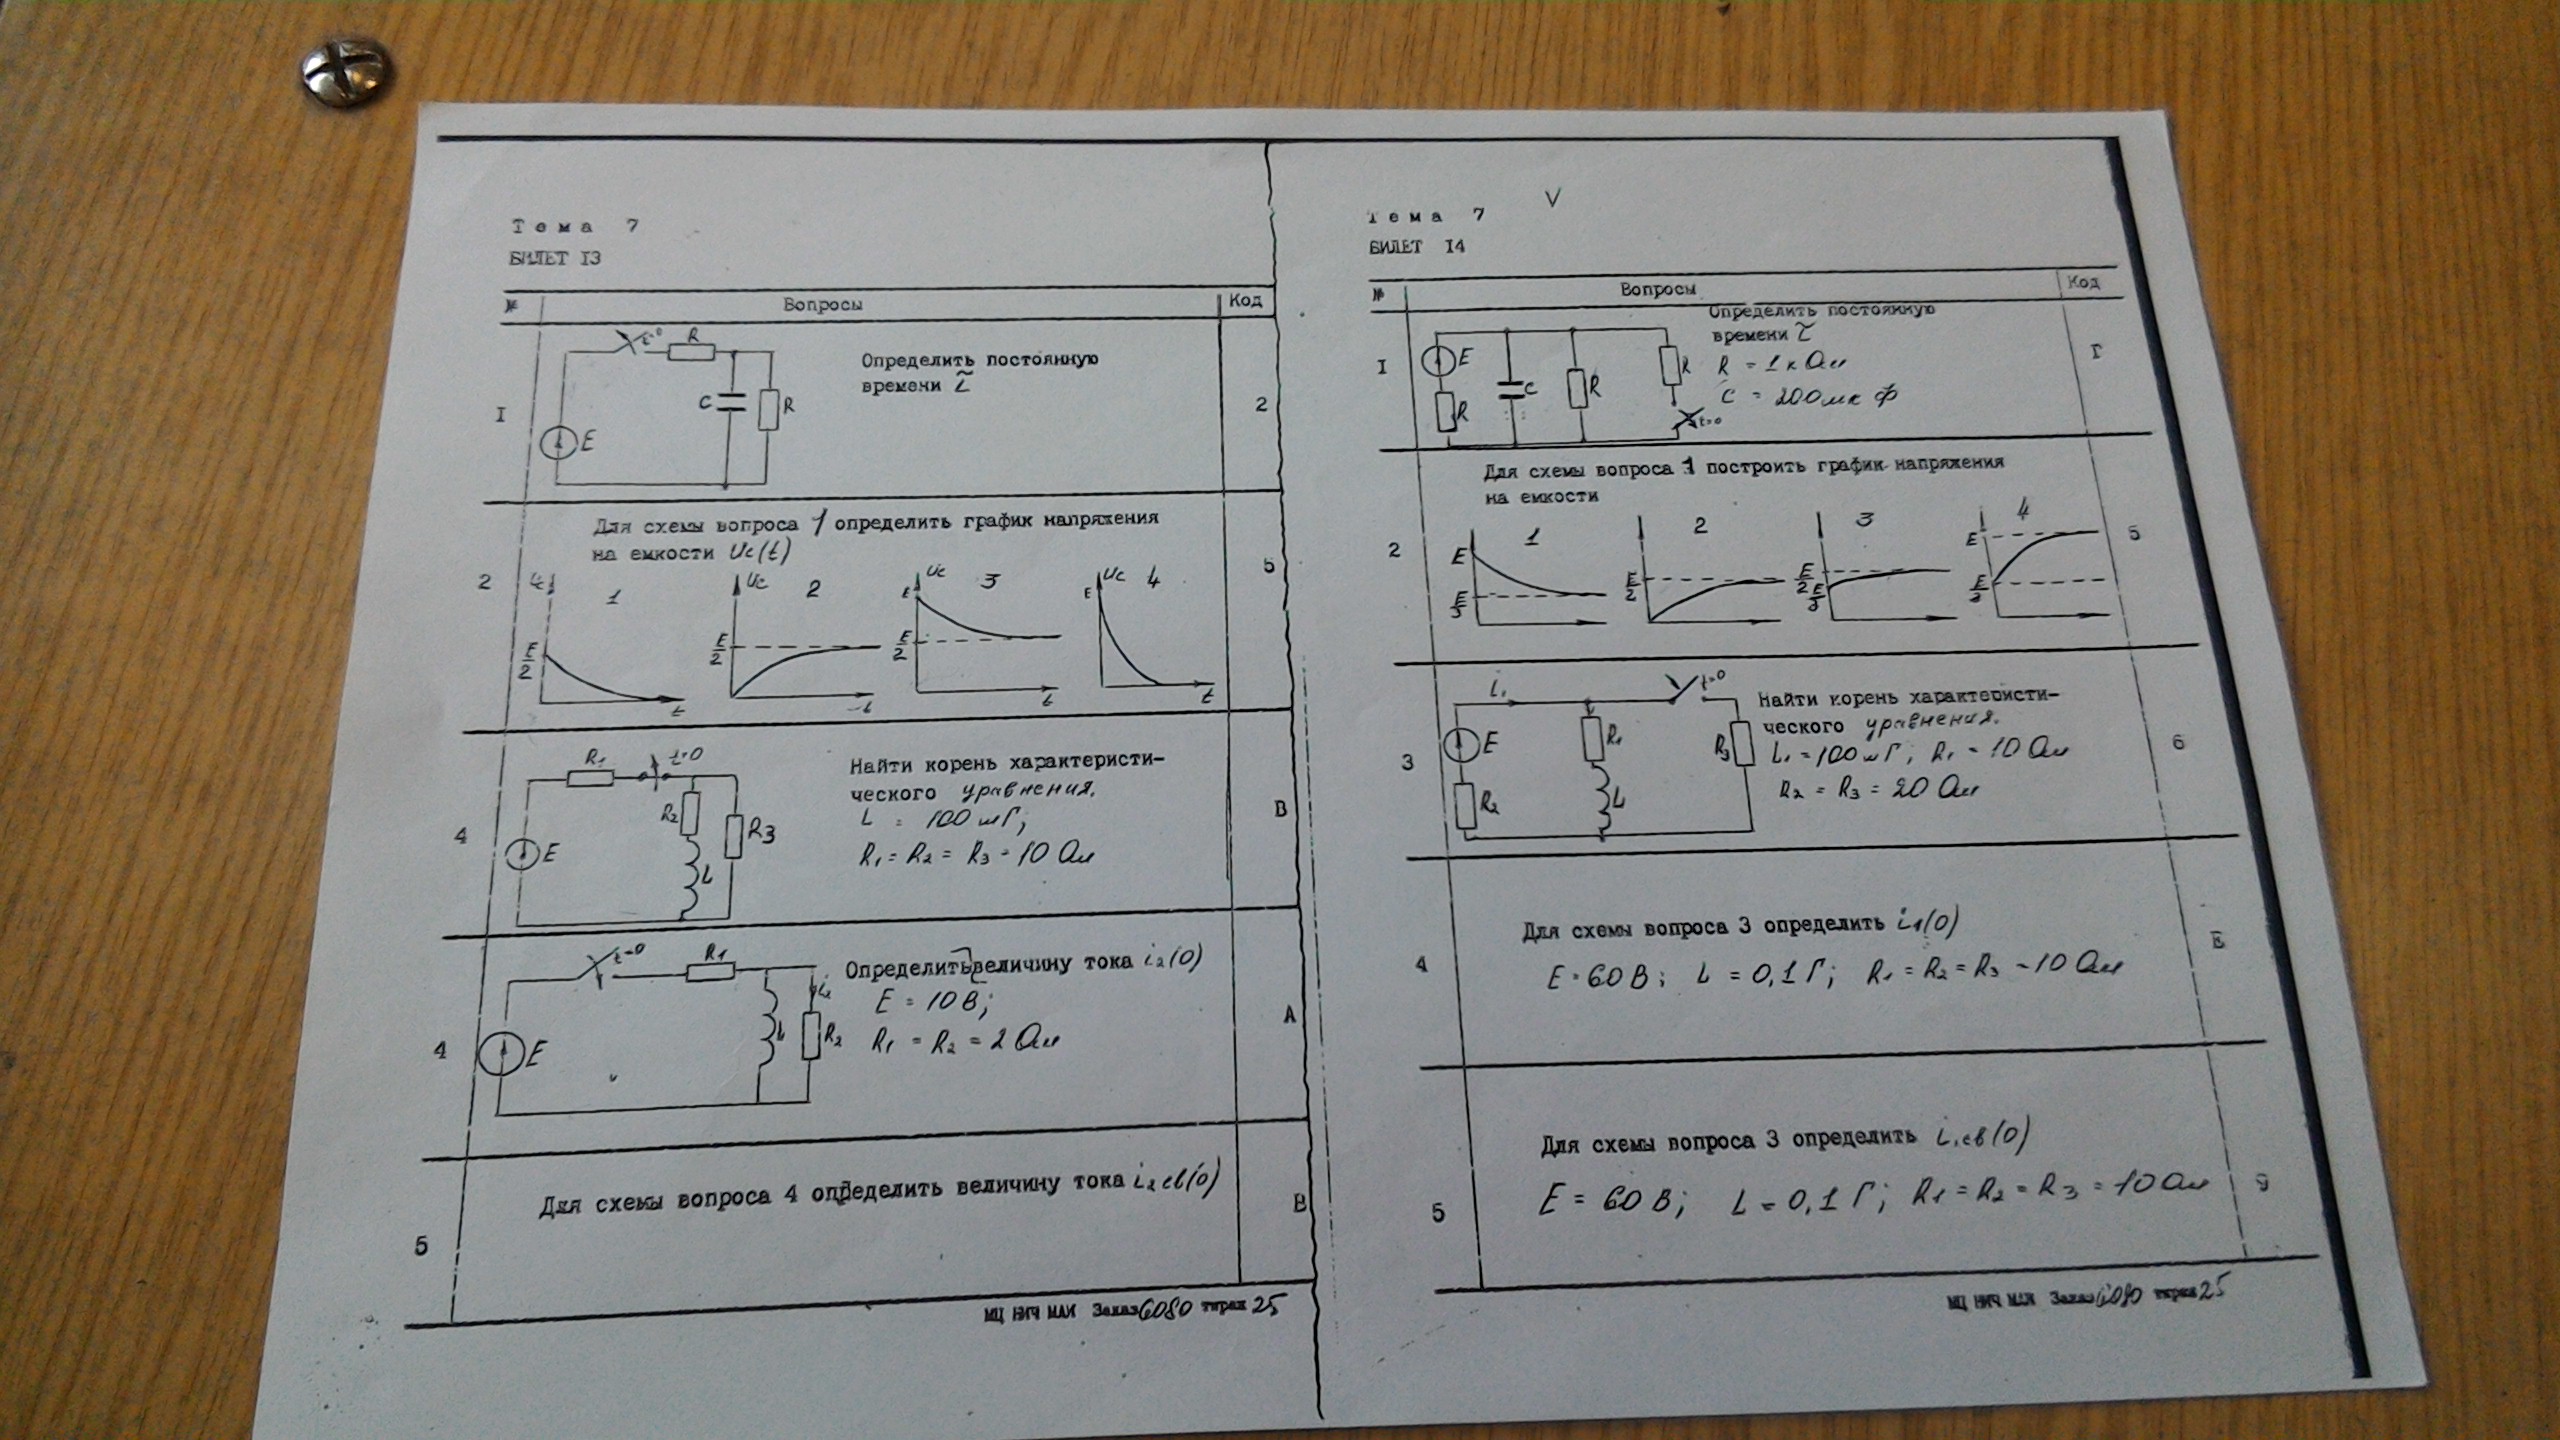 Тема 7
БИЛЕТ I3
№ Вопросы Код
I
t=0
R
C
R
E
Определить постоянную
времени τ
2
2
Для схемы вопроса 1 определить график напряжения
на емкости Uc(t)
5
Uc 1 E/2 t
Uc 2 E/2 t
Uc 3 E E/2 t
Uc 4 E t
4
R1 t=0
R2 R3
E L
Найти корень характеристи-
ческого уравнения.
L = 100 мГ;
R1 = R2 = R3 = 10 Ом
В
4
t=0 R1
i2
E L R2
Определить величину тока i2(0)
E = 10 В;
R1 = R2 = 2 Ом
А
5
Для схемы вопроса 4 определить величину тока i2св(0)
В
МЦ НИЧ МАИ Заказ 6080 тираж 25
V
Тема 7
БИЛЕТ I4
№ Вопросы Код
I
E
R C R R
t=0
Определить постоянную
времени τ
R = 1 кОм
C = 200 мкФ
Г
2
Для схемы вопроса 1 построить график напряжения
на емкости
5
1 E E/3
2 E/2
3 E/2 E/3
4 E E/2
3
i1 t=0
E R1 R3
R2 L
Найти корень характеристи-
ческого уравнения.
L1 = 100 мГ; R1 = 10 Ом
R2 = R3 = 20 Ом
6
4
Для схемы вопроса 3 определить i1(0)
E = 60 В; L = 0,1 Г; R1 = R2 = R3 = 10 Ом
Е
5
Для схемы вопроса 3 определить i1св(0)
E = 60 В; L = 0,1 Г; R1 = R2 = R3 = 10 Ом
9
МЦ НИЧ МАИ Заказ 6080 тираж 25